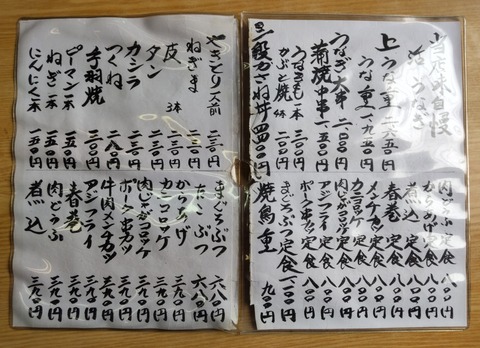 当店味自慢
活うなぎ
上うな重 二六五〇円
うな重 一九五〇円
うなぎ丼 一二〇〇円
蒲焼中串 一五〇円
うなきも一本 二〇〇円
かぶと焼 二〇〇円
二段がさね丼 四四〇〇円
肉どうふ定食 八〇〇円
からあげ定食 八〇〇円
春巻定食 八〇〇円
メンチカツ定食 八〇〇円
カニコロッケ定食 八〇〇円
肉じゃがコロッケ定食 八〇〇円
アジフライ定食 八〇〇円
ポーク串カツ定食 八〇〇円
まぐろぶつ定食 一一〇〇円
焼鳥重 九〇〇円
やきとり 一人前
ねぎま 二三〇円
皮 3本 二三〇円
タン 二三〇円
カシラ 二三〇円
つくね 二八〇円
手羽焼 二三〇円
ピーマン一本 一五〇円
ねぎ一本 一五〇円
にんにく一本 一五〇円
まぐろぶつ 六八〇円
たこぶつ 六八〇円
からあげ 三九〇円
カニコロッケ 三九〇円
肉じゃがコロッケ 三九〇円
ポーク串カツ 三九〇円
牛肉メンチカツ 三九〇円
アジフライ 三九〇円
春巻 三九〇円
肉どうふ 三九〇円
煮込 三九〇円